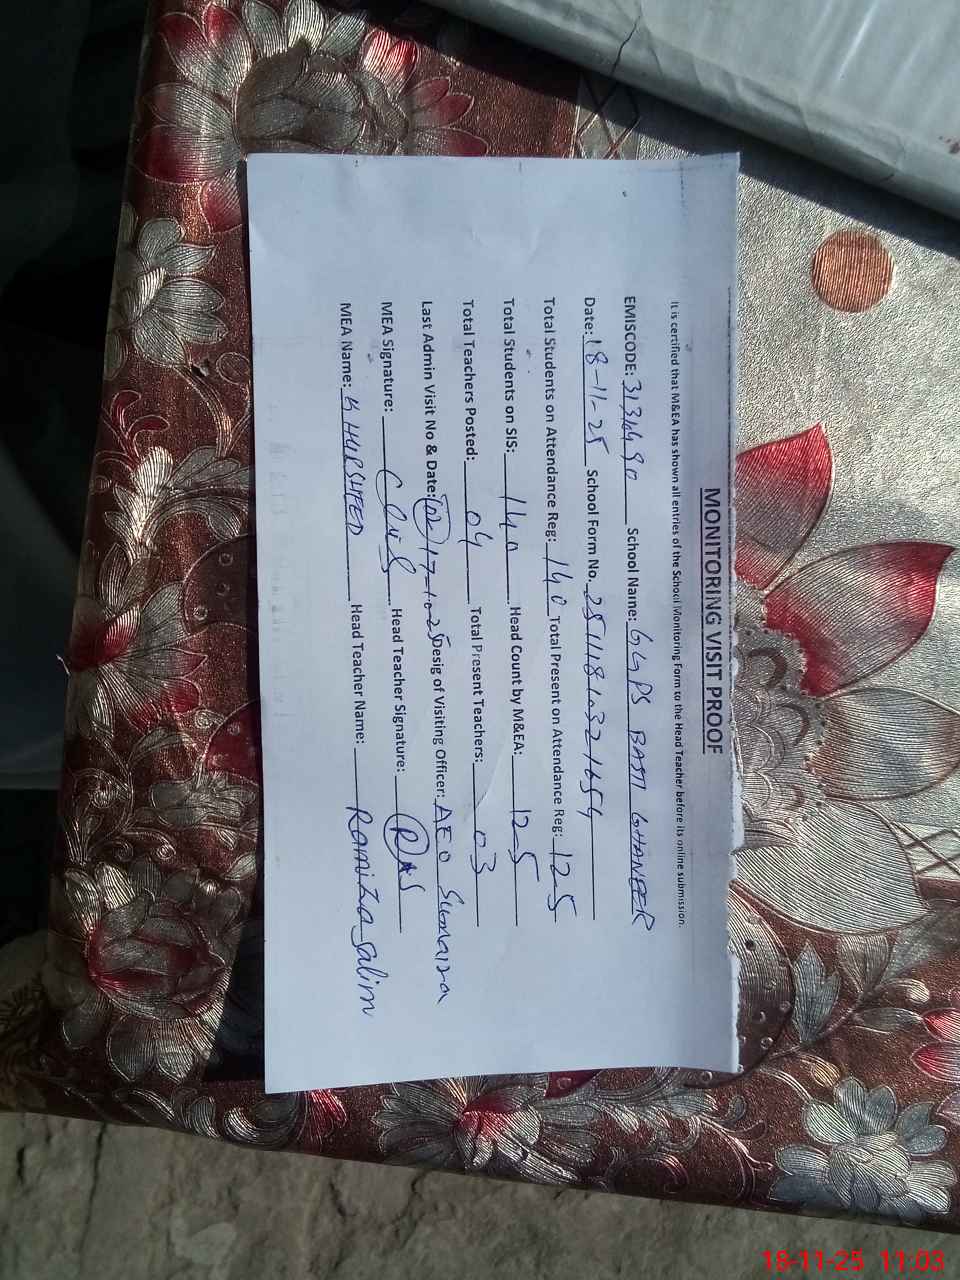 MONITORING VISIT PROOF
It is certified that M&EA has shown all entries of the School Monitoring Form to the Head Teacher before its online submission.
EMISCODE: 3131490 School Name: GGPS BASTI GHANEER
Date: 18-11-25 School Form No. 25111810321654
Total Students on Attendance Reg: 140 Total Present on Attendance Reg: 125
Total Students on SIS: 140 Head Count by M&EA: 125
Total Teachers Posted: 04 Total Present Teachers: 03
Last Admin Visit No & Date: 02 17-10-25 Desig of Visiting Officer: AEO Sumaira
MEA Signature: Head Teacher Signature:
MEA Name: KHURSHEED Head Teacher Name: Ramiza Salim
18-11-25 11:03